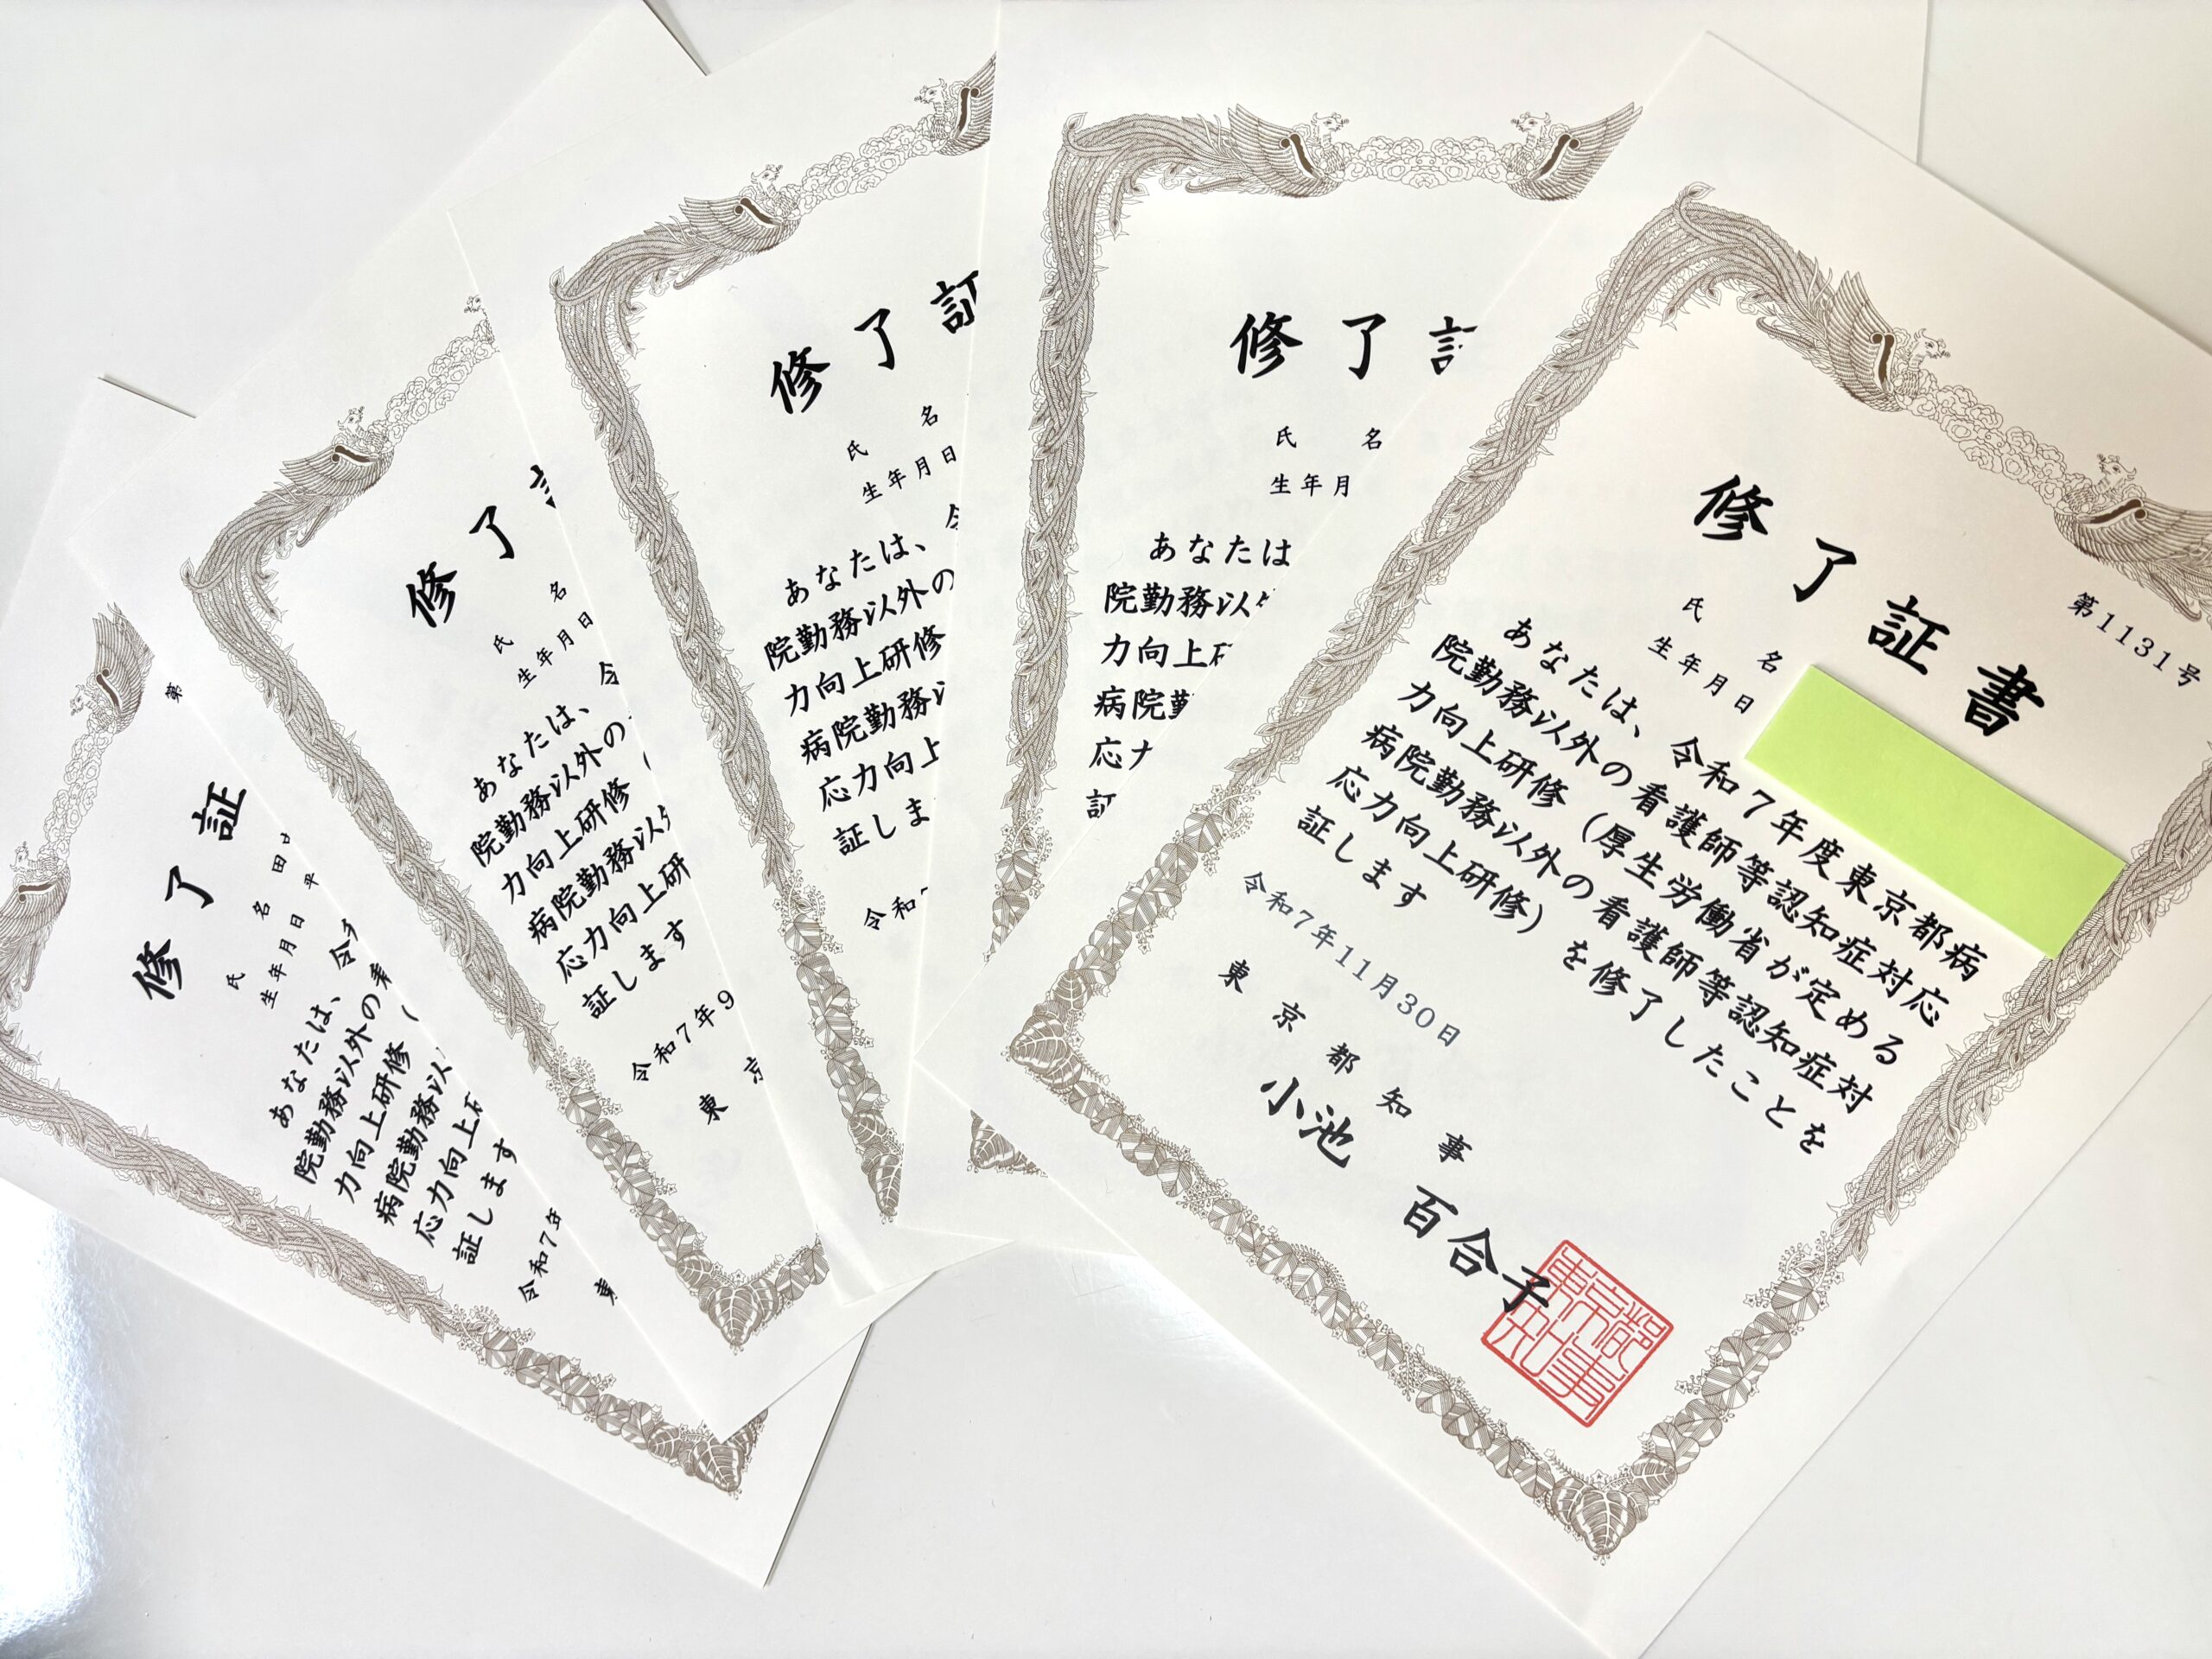 修了証
氏 名 田
生年月日 平
あなたは、令
院勤務以外の看
力向上研修（
病院勤務以
応力向上研
証します
令和7年
東
第
修了
氏 名
生年月日
あなたは、令
院勤務以外の
力向上研修（
病院勤務以外
応力向上研
証します
令和7年9
東京
修了証
氏 名
生年月日
あなたは、令
院勤務以外の
力向上研修
病院勤務以
応力向上
証しま
令和7
修了証
氏 名
生年月
あなたは
院勤務以外
力向上研
病院勤
応力
証
修了証書
第1131号
氏 名
生年月日
あなたは、令和7年度東京都病
院勤務以外の看護師等認知症対応
力向上研修（厚生労働省が定める
病院勤務以外の看護師等認知症対
応力向上研修）を修了したことを
証します
令和7年11月30日
東京都知事
小池 百合子
東京都知事